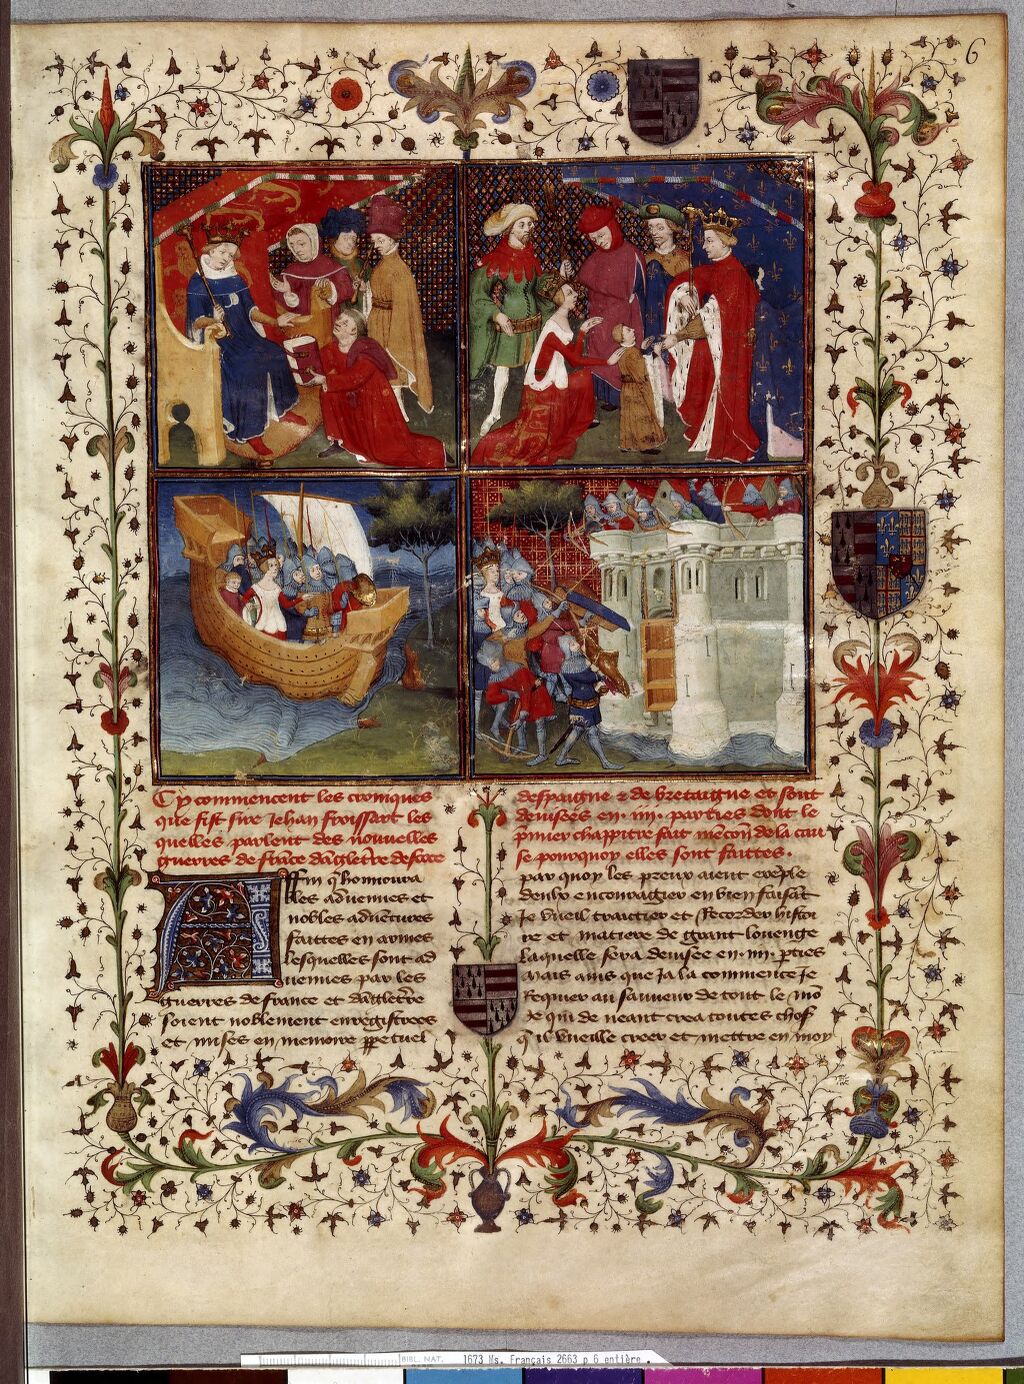 6
Cy commencent les croniques
que fist sire Jehan froissart les
quelles parlent des nouvelles
guerres de frāce dāgleter̄e descoce
despaigne & de bretaigne et sont
devisees en .iiii. parties dont le
p̄mier chappitre fait mēcōn de la cau
se pourquoy elles sont faittes.
Affin q̄ honnoura
bles advenues et
nobles advētures
faittes en armes
lesquelles sont ad
venues par les
guerres de france et dāglet̄re
soient noblement enregistrees
et mises en memoire ꝑpetuel
par quoy les preux aient exēple
deulx encouragier en bien faisāt
Je vueil traictier et Recorder histoi
re et matiere de grant louenge
Laquelle sera devisee en .iiii. ꝑties
Mais ains que Ja la commence Je
Requier au sauveur de tout le mō
de qui de neant crea toutes chos̄
q̄ il vueille creer et mettre en moy
BIBL. NAT. 1673 Ms. Français 2663 p 6 entière .